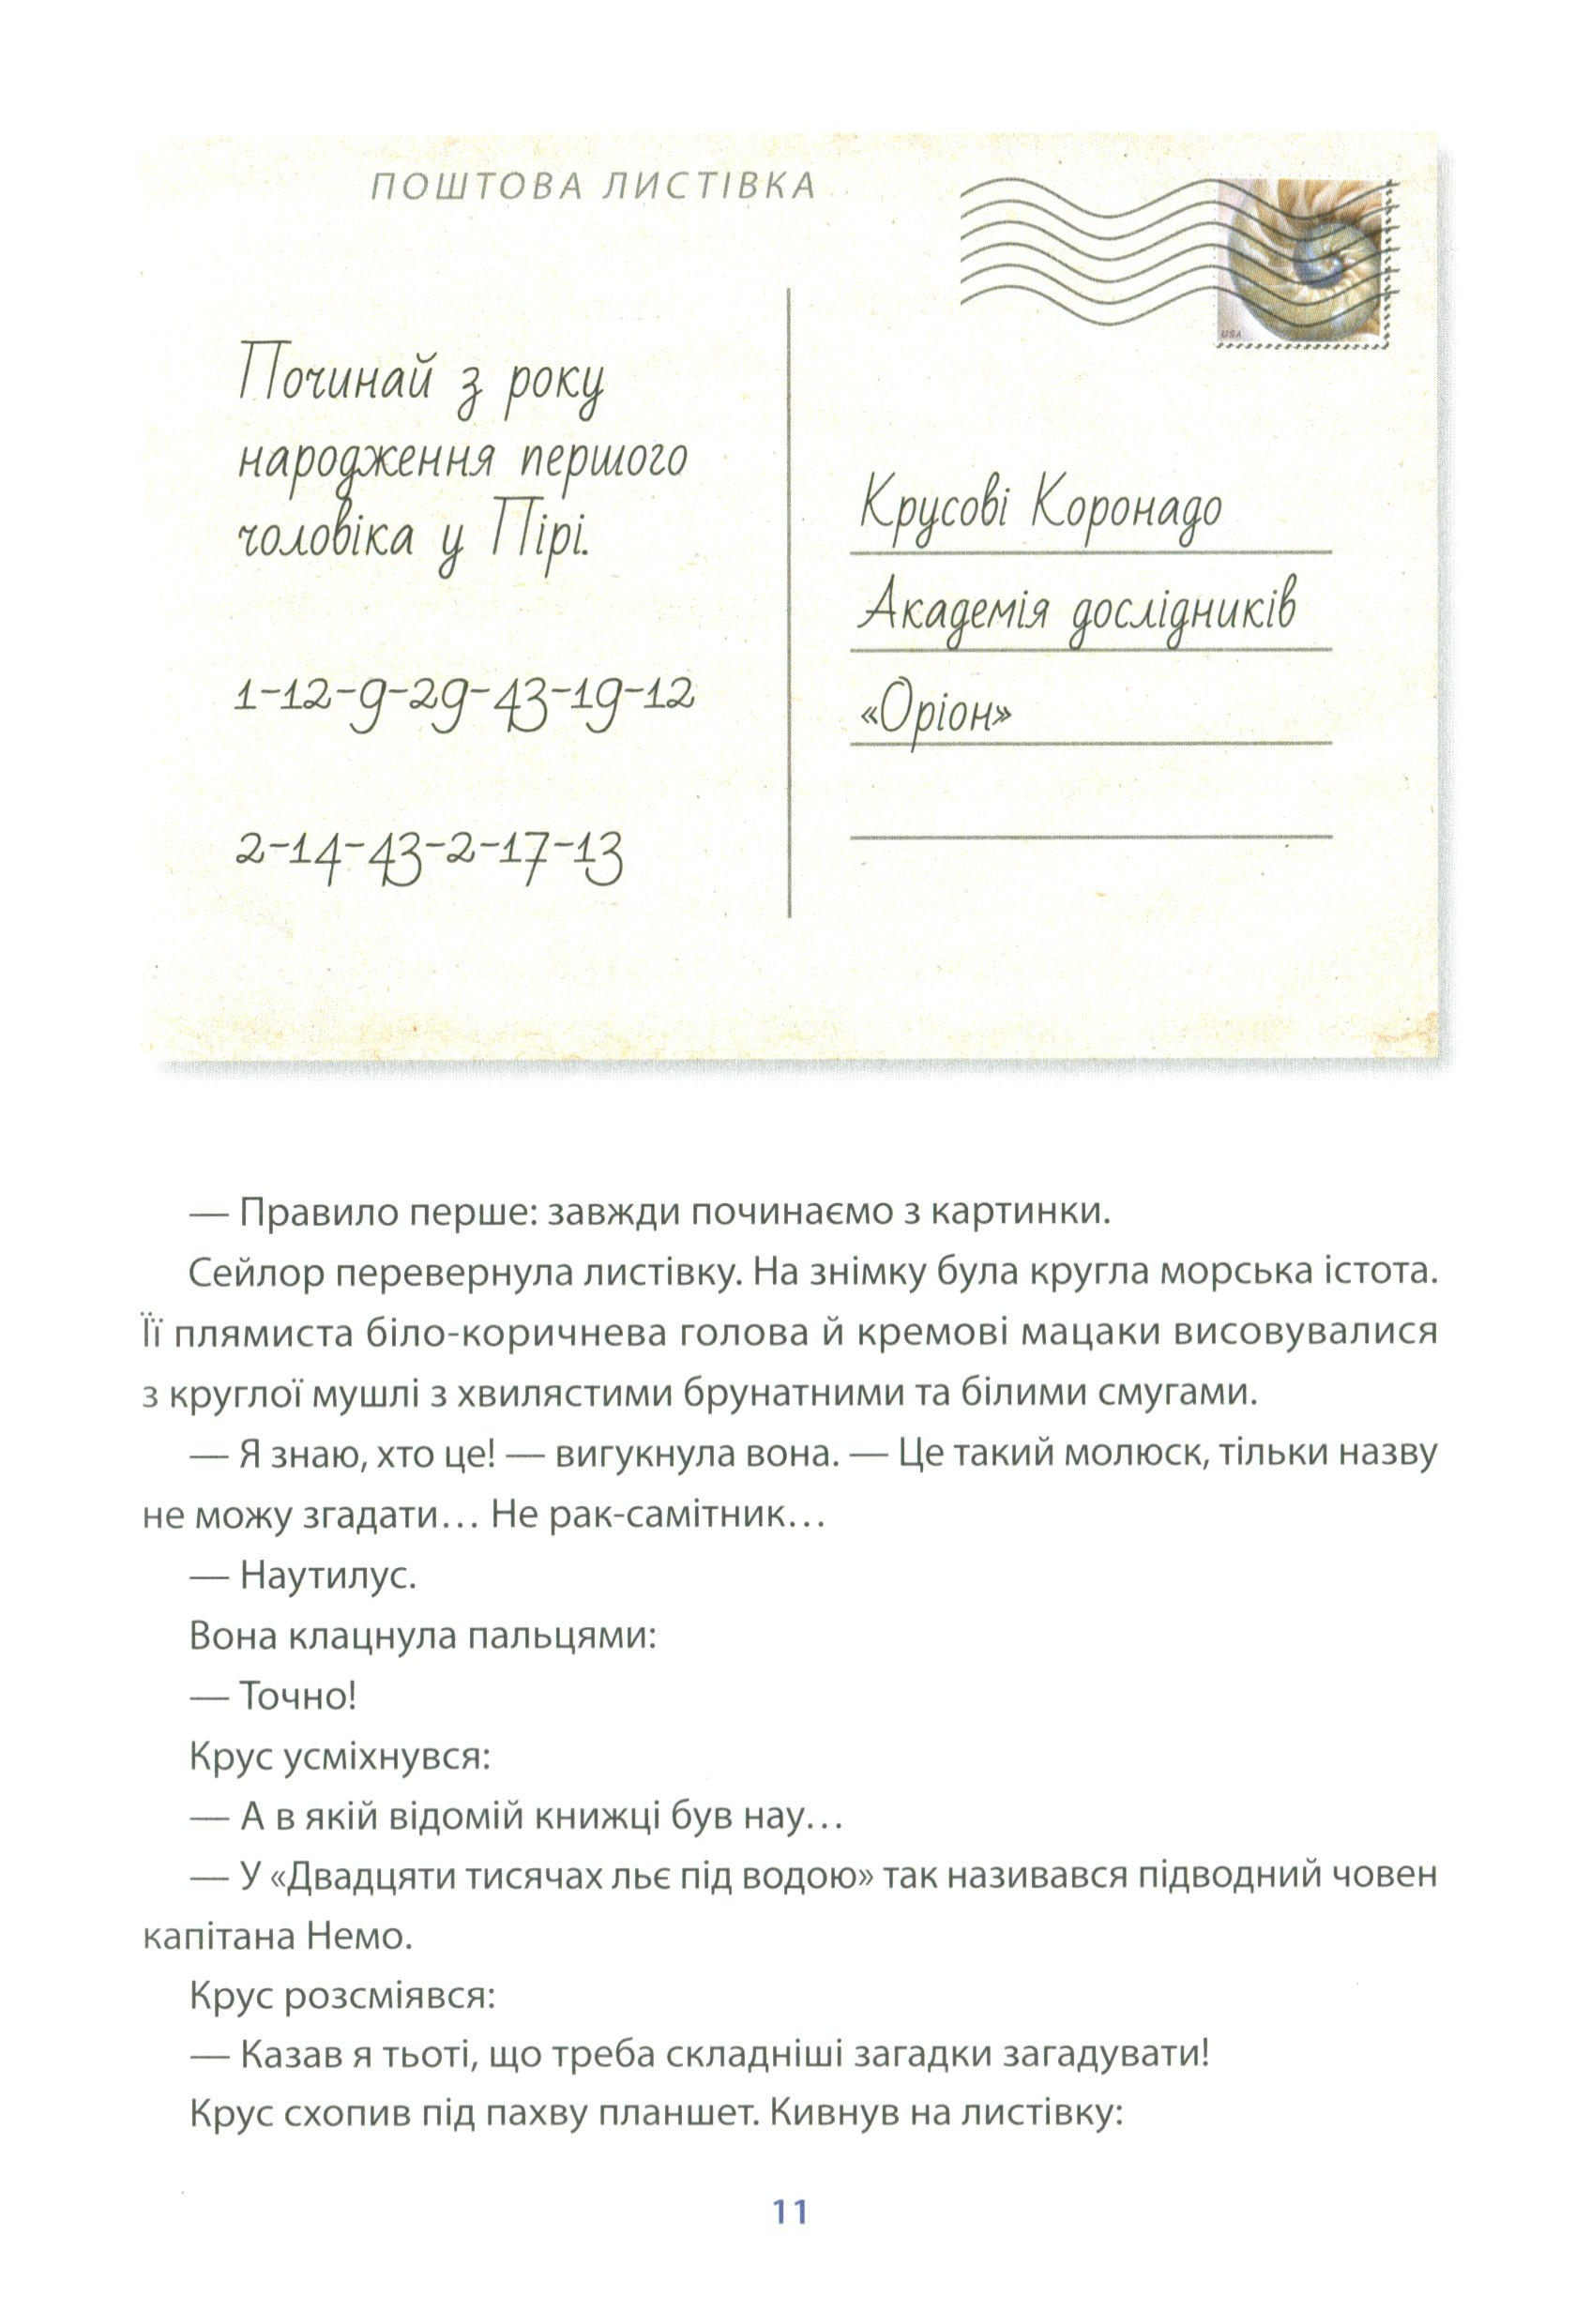 ПОШТОВА ЛИСТІВКА
USA
Починай з року
народження першого
чоловіка у Пірі.
1-12-9-29-43-19-12
2-14-43-2-17-13
Крусові Коронадо
Академія дослідників
«Оріон»
— Правило перше: завжди починаємо з картинки.
Сейлор перевернула листівку. На знімку була кругла морська істота.
Її плямиста біло-коричнева голова й кремові мацаки висовувалися
з круглої мушлі з хвилястими брунатними та білими смугами.
— Я знаю, хто це! — вигукнула вона. — Це такий молюск, тільки назву
не можу згадати… Не рак-самітник…
— Наутилус.
Вона клацнула пальцями:
— Точно!
Крус усміхнувся:
— А в якій відомій книжці був нау…
— У «Двадцяти тисячах льє під водою» так називався підводний човен
капітана Немо.
Крус розсміявся:
— Казав я тьоті, що треба складніші загадки загадувати!
Крус схопив під пахву планшет. Кивнув на листівку:
11